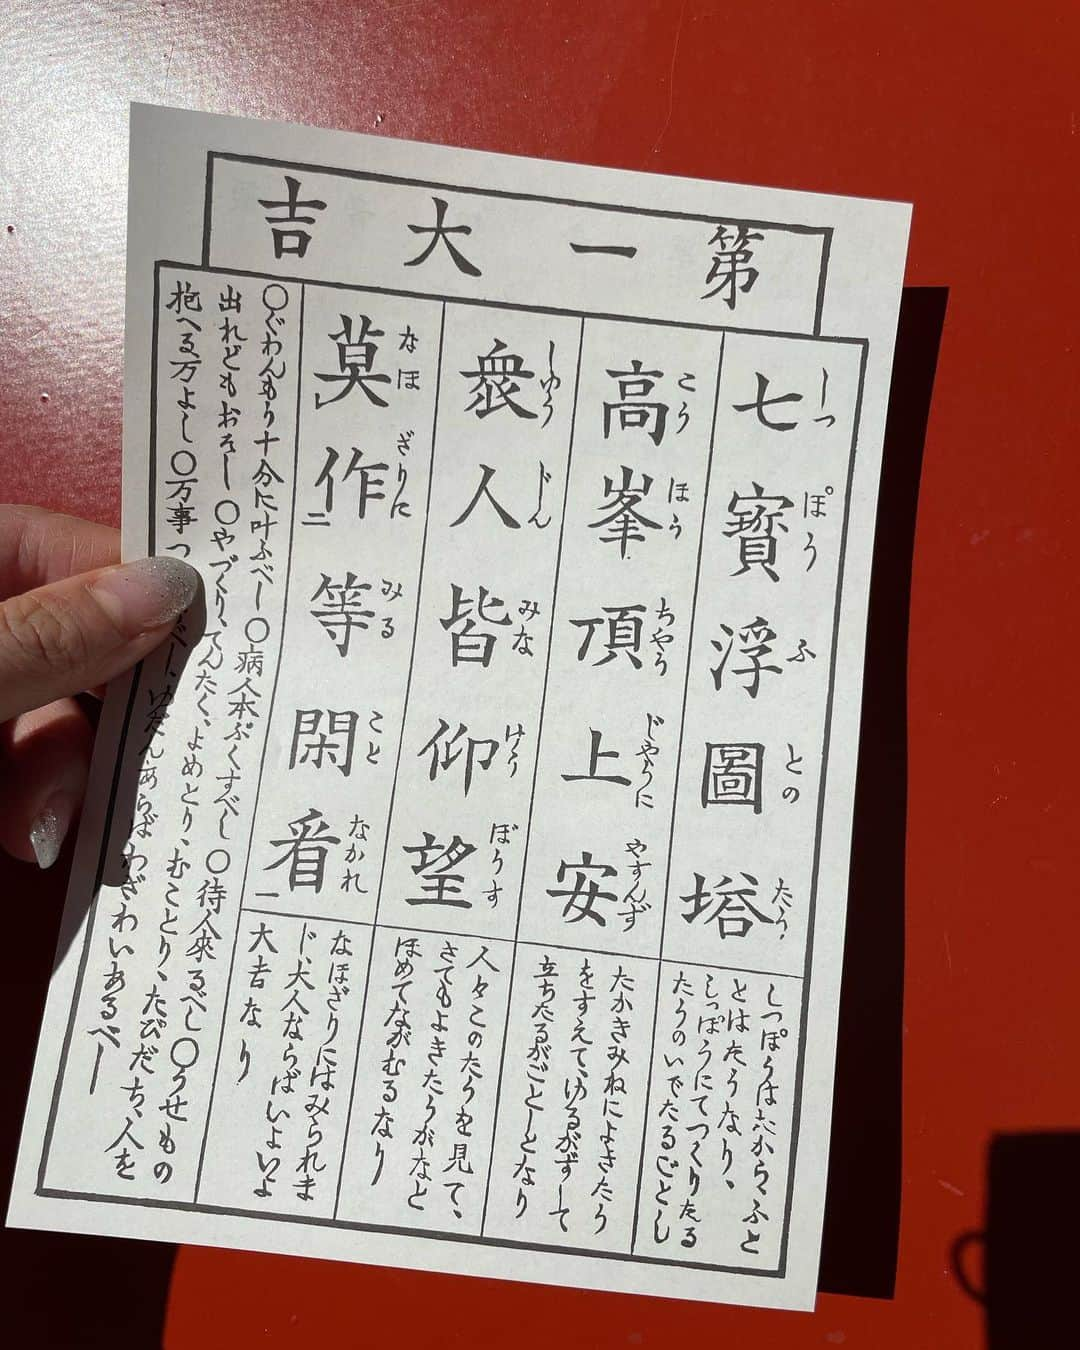 第一大吉
七寶浮圖塔
しっぽうふとのたう
しつぽうはたから、ふと
とはたうなり、
しっぽうにてつくりたる
たうのいでたるごとし
高峯頂上安
こうほうちやうじやうにやすんず
たかきみねによきたう
をすえて、ゆるがずして
立ちたるがごとしとなり
衆人皆仰望
しゆうじんみなげうぼうす
人々このたうを見て、
さてもよきたうがなと
ほめてながむるなり
莫作等閑看
なほざりにみることなかれ
二
一
なほざりにはみられま
じ、大人ならばいよいよ
大吉なり
〇ぐわんもう十分に叶ふべし〇病人本ぷくすべし〇待人來るべし〇うせもの
出れどもおそし〇やづくり、てんたく、よめとり、むことり、たびだち、人を
抱へる万よし〇万事つ べし、ゆだんあらばわざわいあるべし